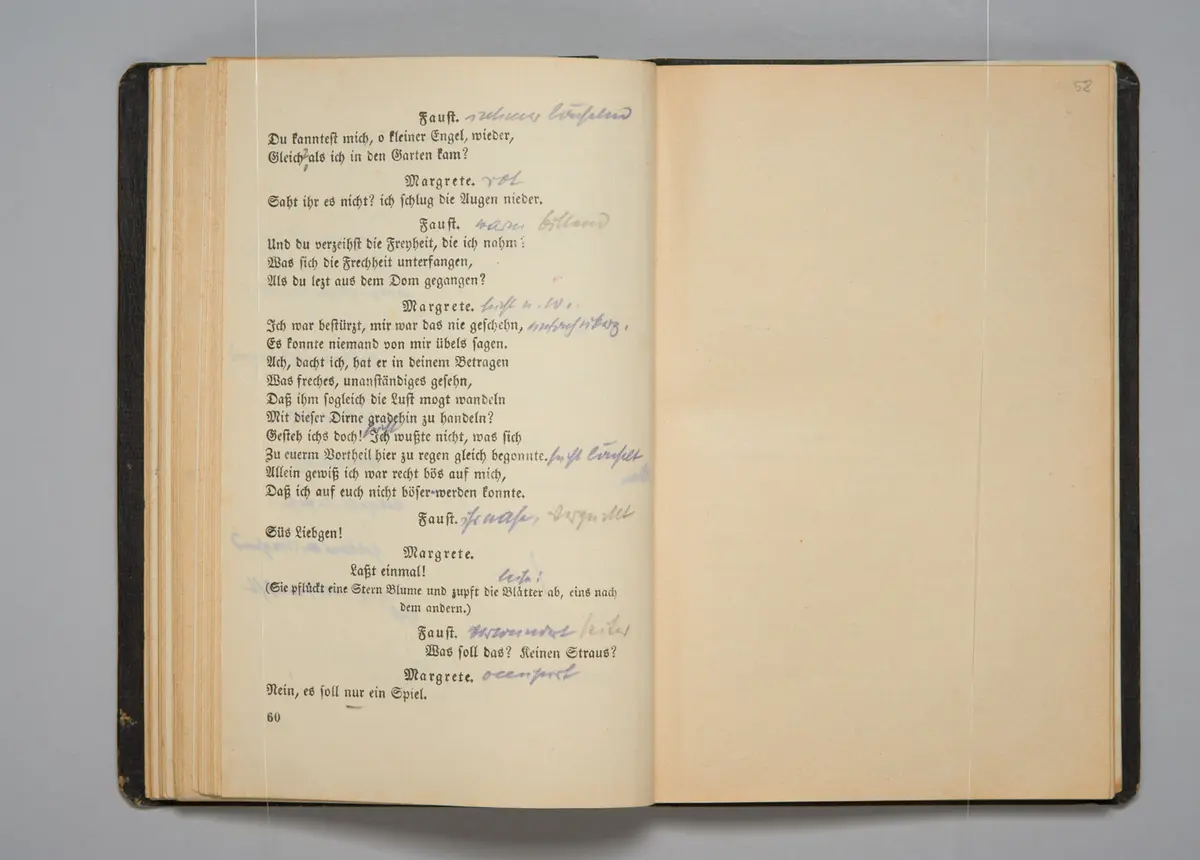 52
Faust.
Du kanntest mich, o kleiner Engel, wieder,
Gleich als ich in den Garten kam?
Margrete. rot
Saht ihr es nicht? ich schlug die Augen nieder.
Faust. warm bittend
Und du verzeihst die Freyheit, die ich nahm?
Was sich die Frechheit unterfangen,
Als du lezt aus dem Dom gegangen?
Margrete.
Ich war bestürzt, mir war das nie geschehn,
Es konnte niemand von mir übels sagen.
Ach, dacht ich, hat er in deinem Betragen
Was freches, unanständiges gesehn,
Daß ihm sogleich die Lust mogt wandeln
Mit dieser Dirne gradehin zu handeln?
Gesteh ichs doch! Ich wußte nicht, was sich
Zu euerm Vortheil hier zu regen gleich begonnte.
Allein gewiß ich war recht bös auf mich,
Daß ich auf euch nicht böser werden konnte.
Faust.
Süs Liebgen!
Margrete.
Laßt einmal!
(Sie pflückt eine Stern Blume und zupft die Blätter ab, eins nach
dem andern.)
Faust. verwundert heiter
Was soll das? Keinen Straus?
Margrete.
Nein, es soll nur ein Spiel.
60